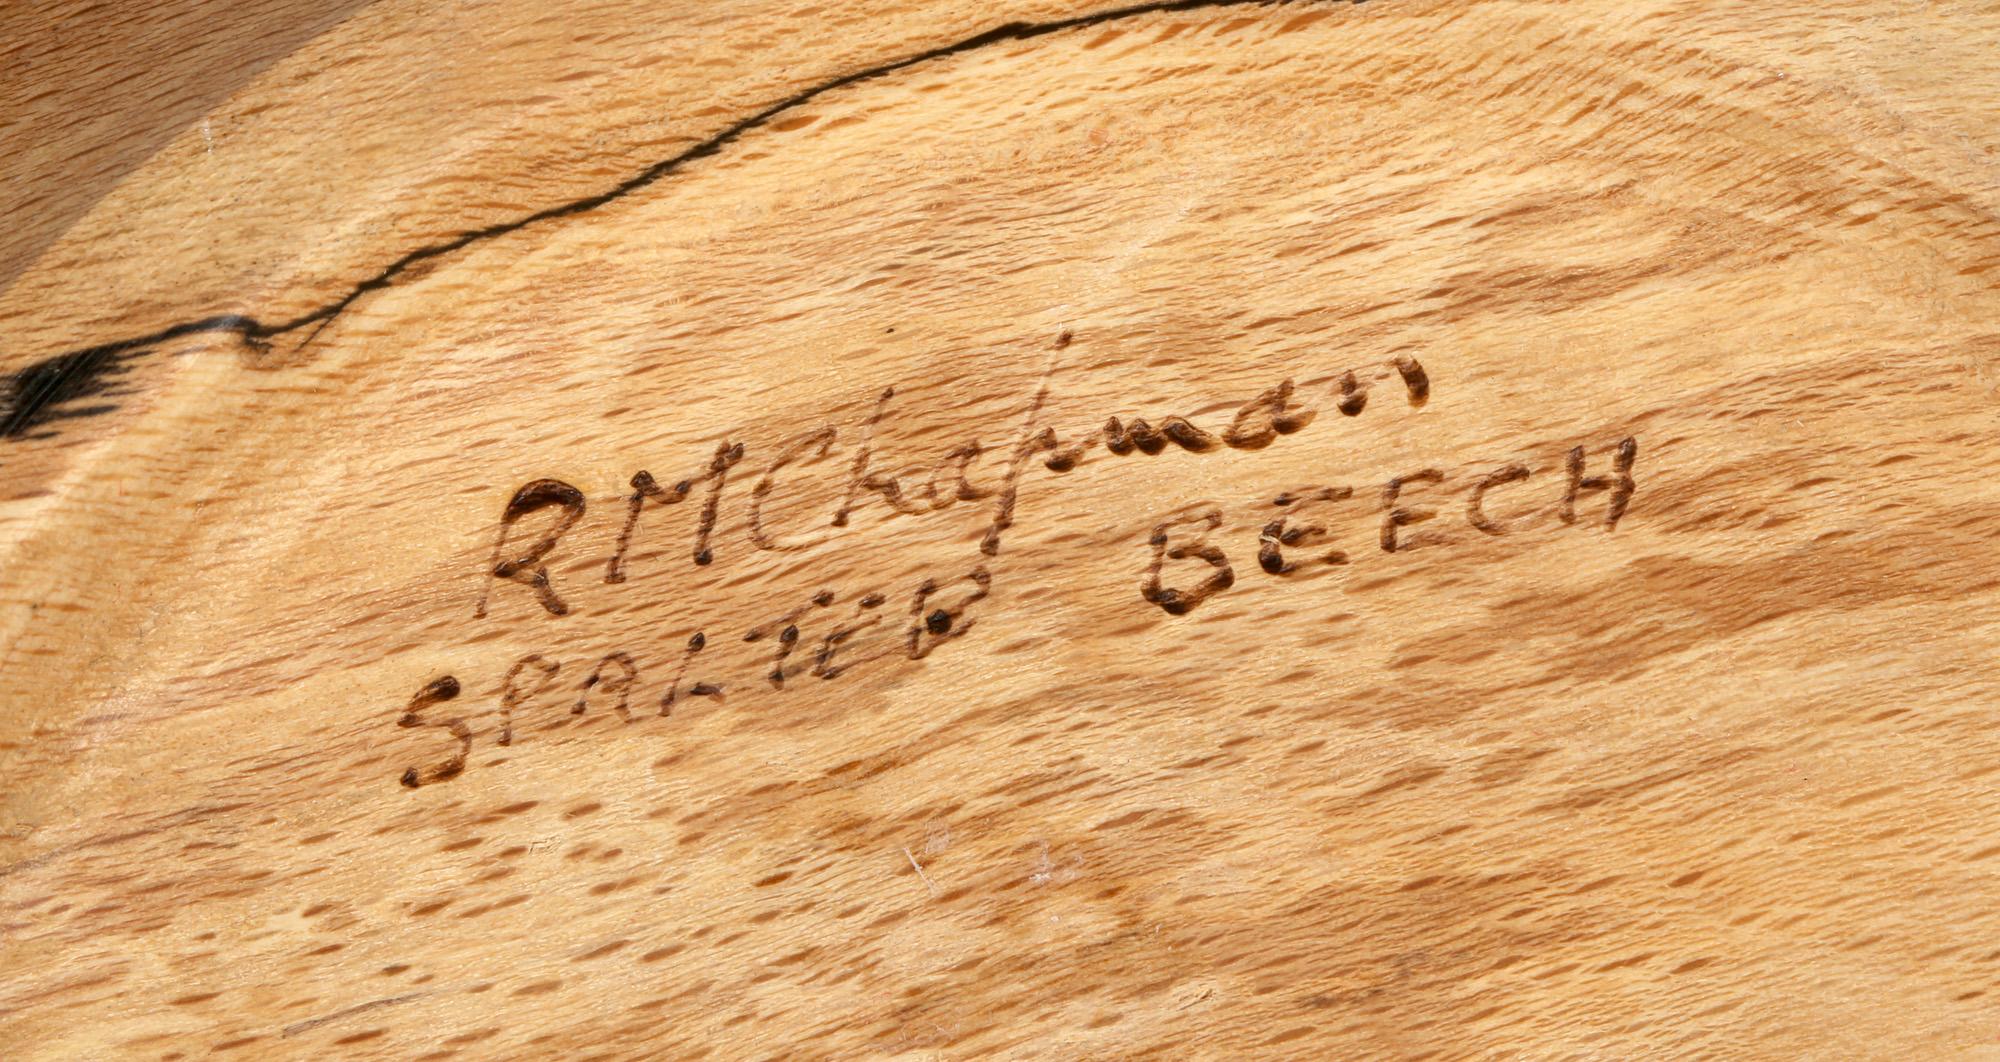 RMChapman
SPALTED BEECH